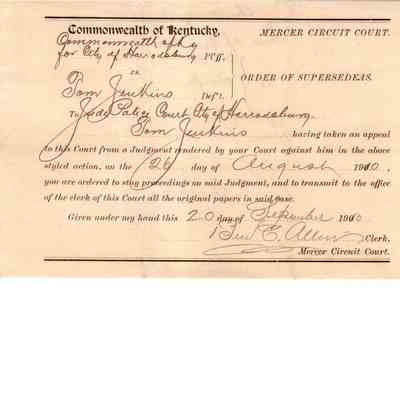 Commonwealth of Kentucky,
MERCER CIRCUIT COURT.
Commonwealth of Ky
for City of Harrodsburg Plff.
vs.
ORDER OF SUPERSEDEAS.
Tom Jenkins Deft.
To Judge Police Court City of Harrodsburg
Tom Jenkins having taken an appeal
to this Court from a Judgment rendered by your Court against him in the above
styled action, on the 26 day of August 1910.
you are ordered to stay proceedings on said Judgment, and to transmit to the office
of the clerk of this Court all the original papers in said case.
Given under my hand this 20 day of September 1910
E. Allen Clerk,
Mercer Circuit Court.